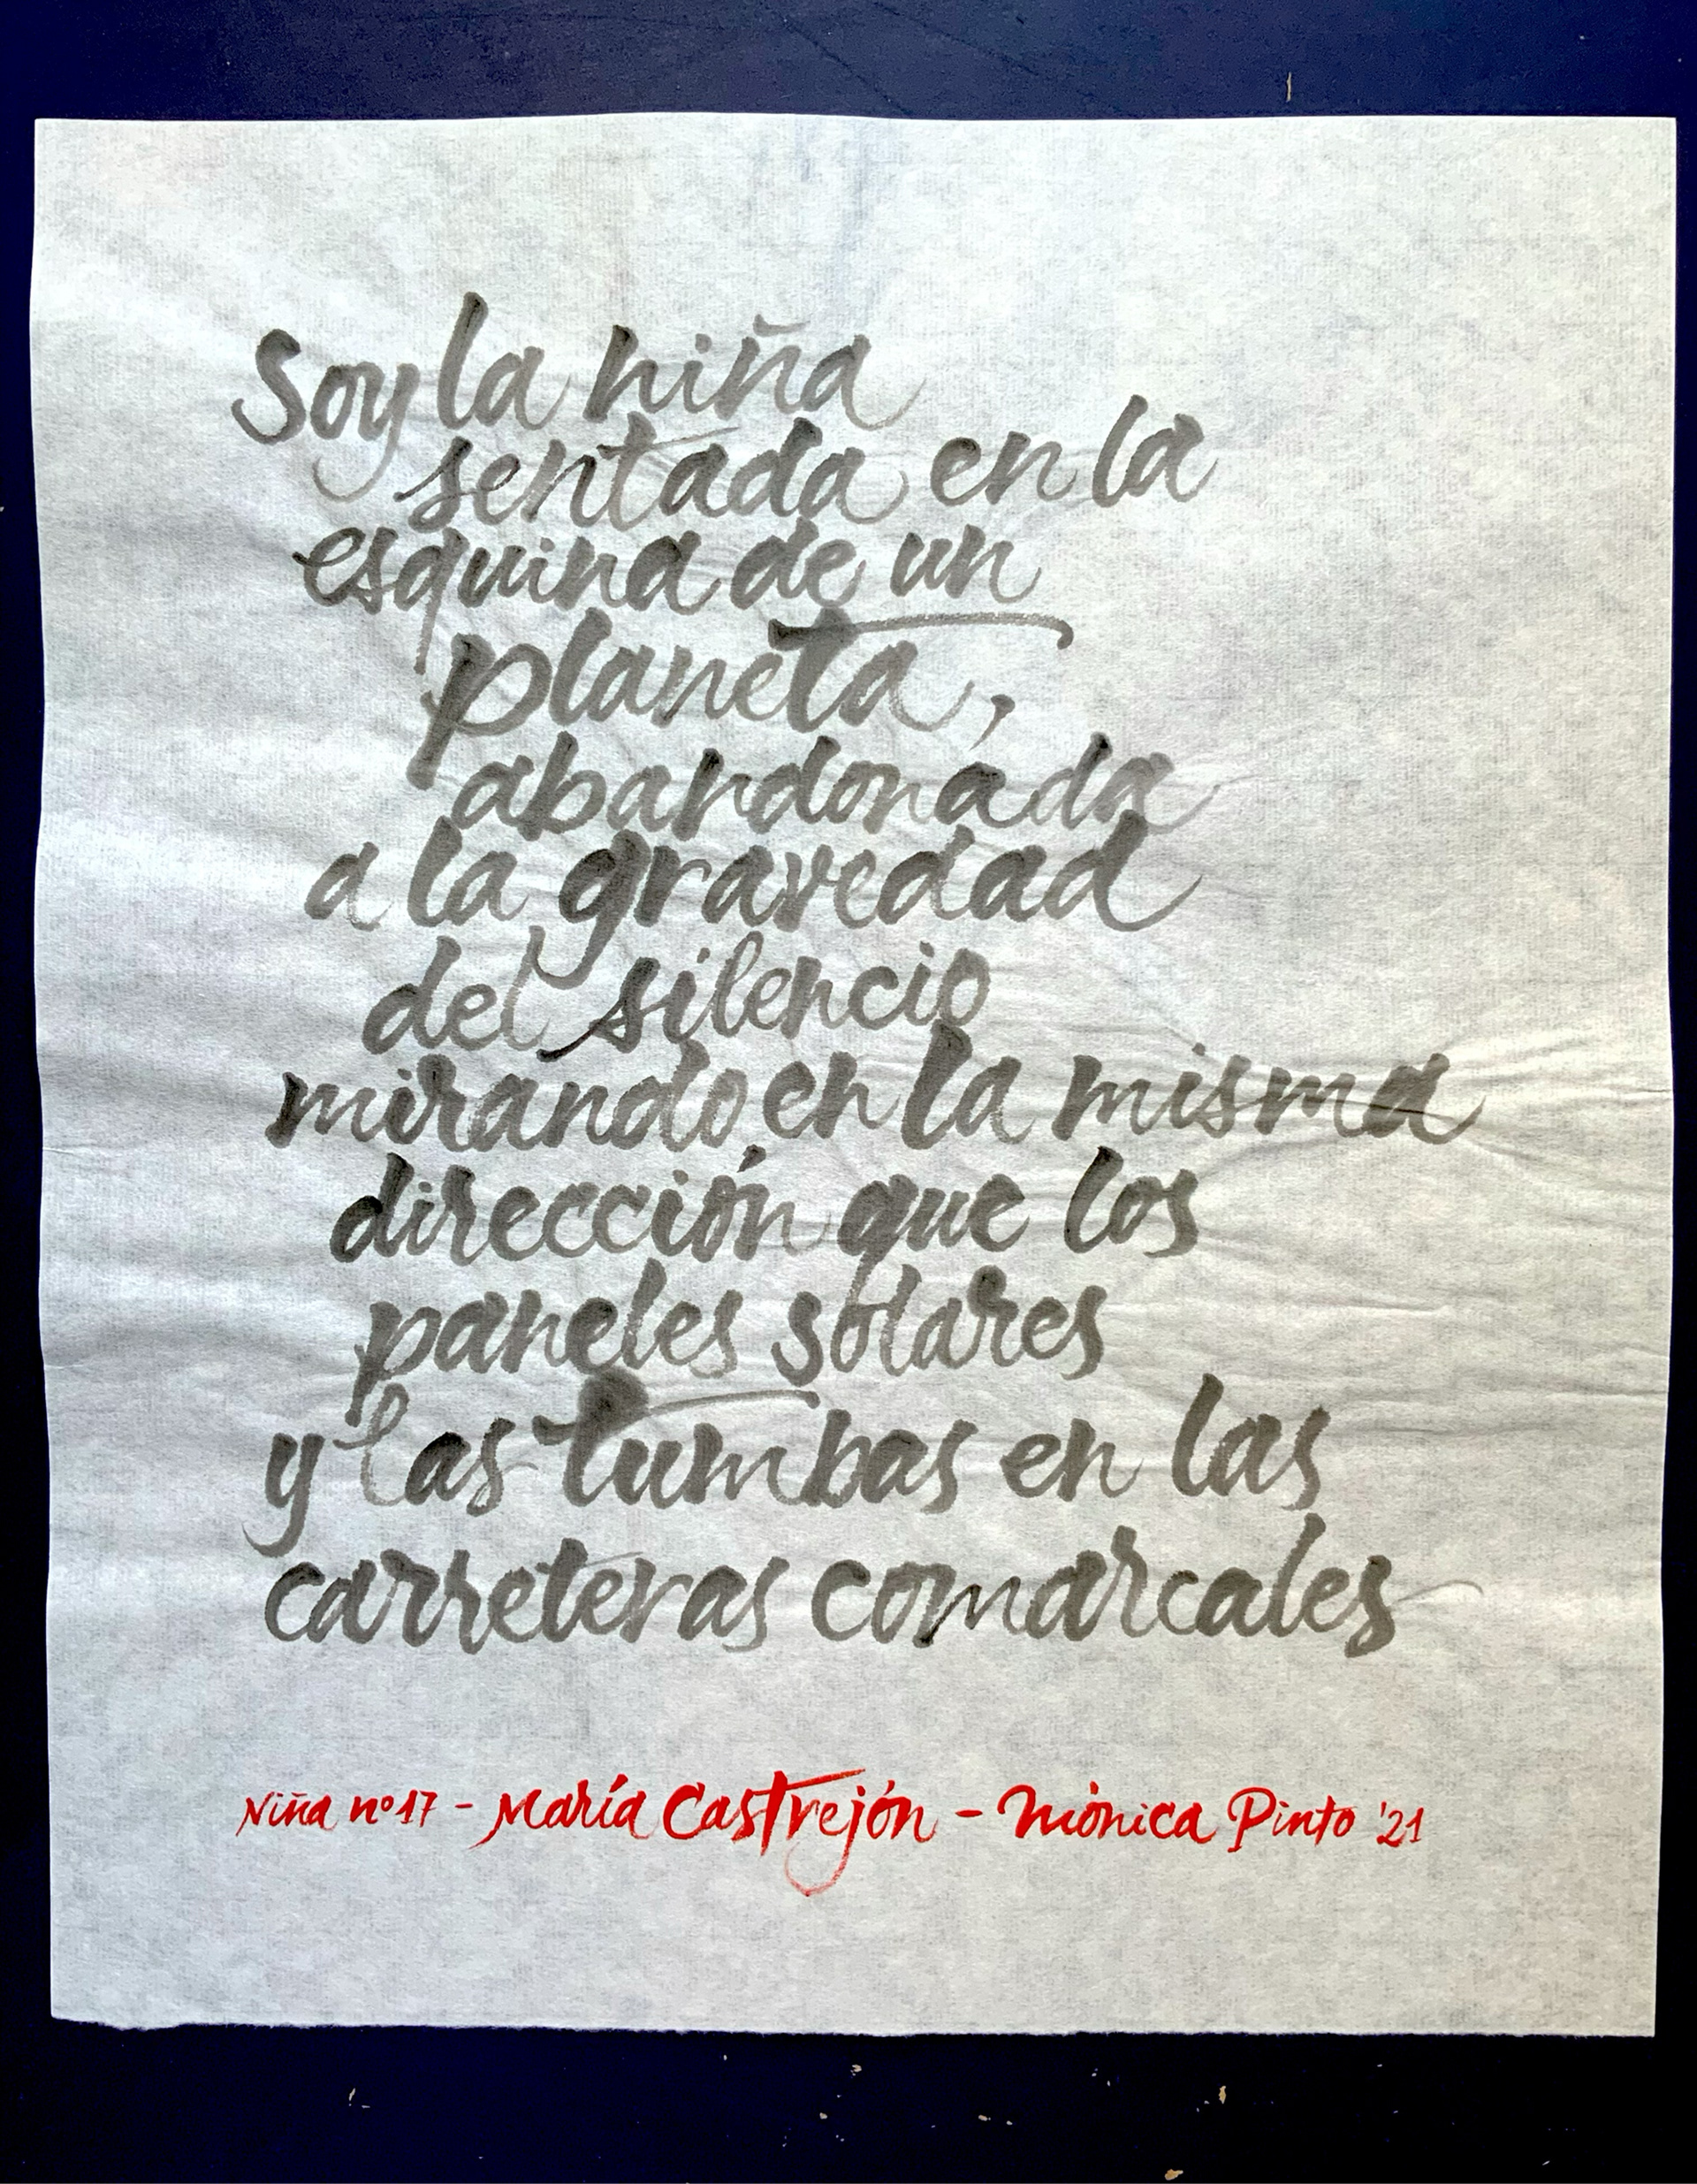 Soy la niña
sentada en la
esquina de un
planeta,
abandonada
a la gravedad
del silencio
mirando en la misma
dirección que los
paneles solares
y las tumbas en las
carreteras comarcales
Niña nº 17 - María Castrejón - Mónica Pinto '21